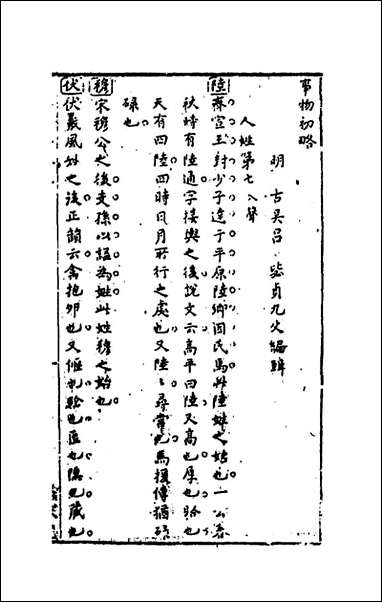 事物初略
明 古吳呂 毖貞九父編輯
人姓第七 入聲
陸 齊宣王封少子達于平原陸鄉因氏焉此陸姓之始也一云春
秋時有陸通字接輿之後說文云高平曰陸又高也厚也路也
天有四陸四時日月所行之處也又陸陸尋常也馬援傳猶碌
碌也
穆 宋穆公之後支孫以諡為姓此姓穆之始也
伏 伏羲風姓之後正韻云禽抱卵也又偃也匿也隱也藏也